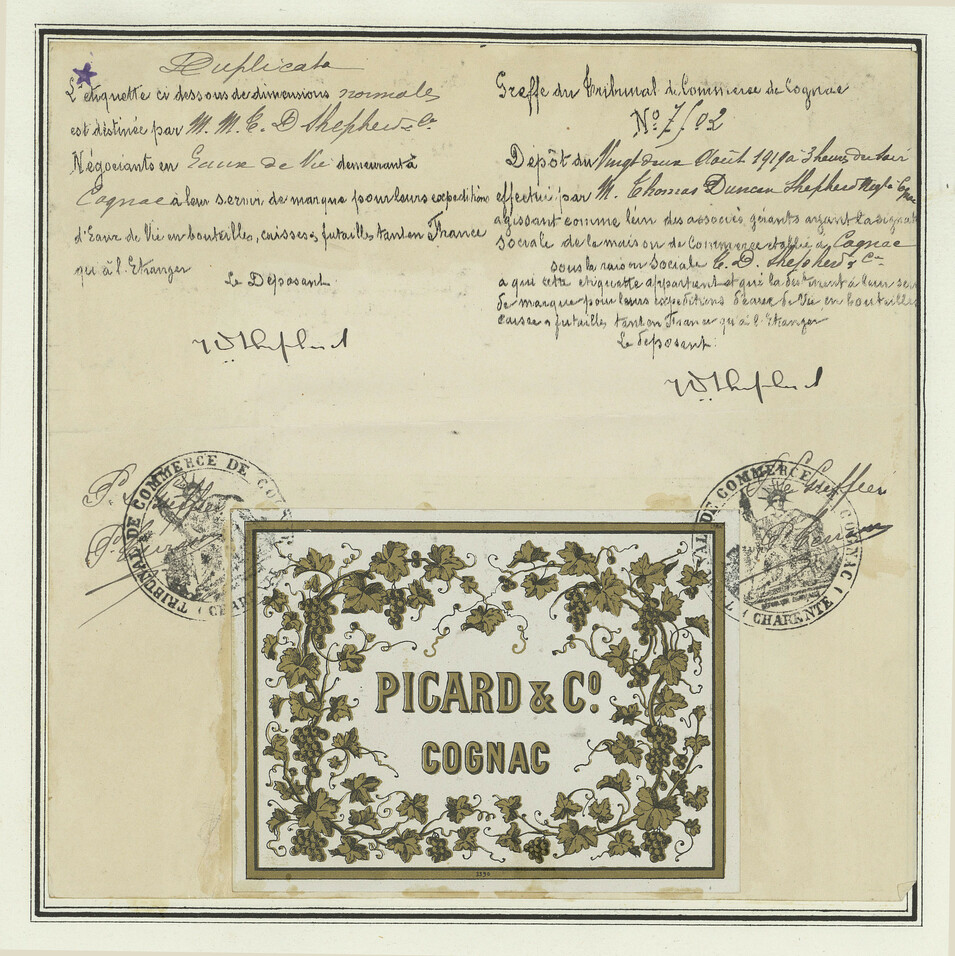 Duplicata
L'étiquette ci dessous de dimensions normales
est destinée par M. M. T. D Shepherd & Cie
Négociants en Eaux de Vie demeurant à
Cognac à leur servir de marque pour leurs expéditions
d'Eaux de Vie en bouteilles, caisses & futailles tant en France
qu'à l'Etranger
Le Déposant
Greffe du Tribunal de Commerce de Cognac
No 7502
Dépôt du Vingt deux Août 1919 à 3 heures du soir
effectué par M. Thomas Duncan Shepherd Negt à
agissant comme l'un des associés gérants ayant la signat
sociale de la maison de Commerce établie à Cognac
sous la raison sociale T. D. Shepherd & Cie
à qui cette étiquette appartient et qui la destinent à leur ser
de marque pour leurs expéditions d'eaux de Vie en bouteilles
caisses & futailles tant en France qu'à l'Etranger
Le déposant:
TRIBUNAL DE COMMERCE DE CO
(CHA
DE COMMERCE
COGNAC
(CHARENTE)
P. Le Greffier
Le Greffier
PICARD & Co.
COGNAC